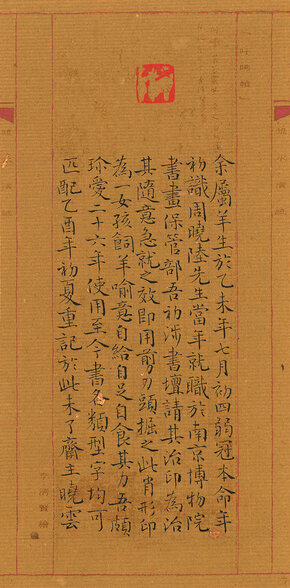 余属羊生於乙未年七月初四弱冠本命年
初識周曉陸先生當年就職於南京博物院
書畫保管部吾初涉書壇請其治印為治
其隨意急就之效即用剪刀頭掘之此肖形印
為一女孩飼羊喻意自給自足自食其力吾頗
珍愛二十六年使用至今書名類型字均可
匹配乙酉年初夏重記於此未了齋主曉雲